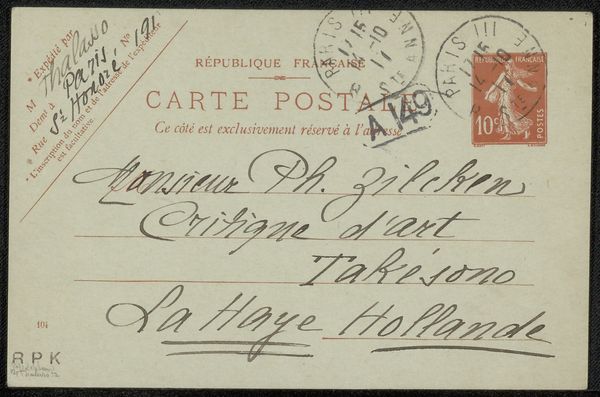 * Expédité par
M Thalasso
Domé à Paris
Rue St Honoré N° 191
* L'inscription du nom et de l'adresse de l'expéditeur
est facultative.
RÉPUBLIQUE FRANÇAISE
CARTE POSTALE
Ce côté est exclusivement réservé à l'adresse
PARIS III
17 15
14-10
11
PARIS III
17 15
14-10
11
A 149
RÉPUBLIQUE FRANÇAISE
10c
POSTES
Monsieur Ph. Zilcken
Critique d'art
Takésono
La Haye Hollande
104
RPK